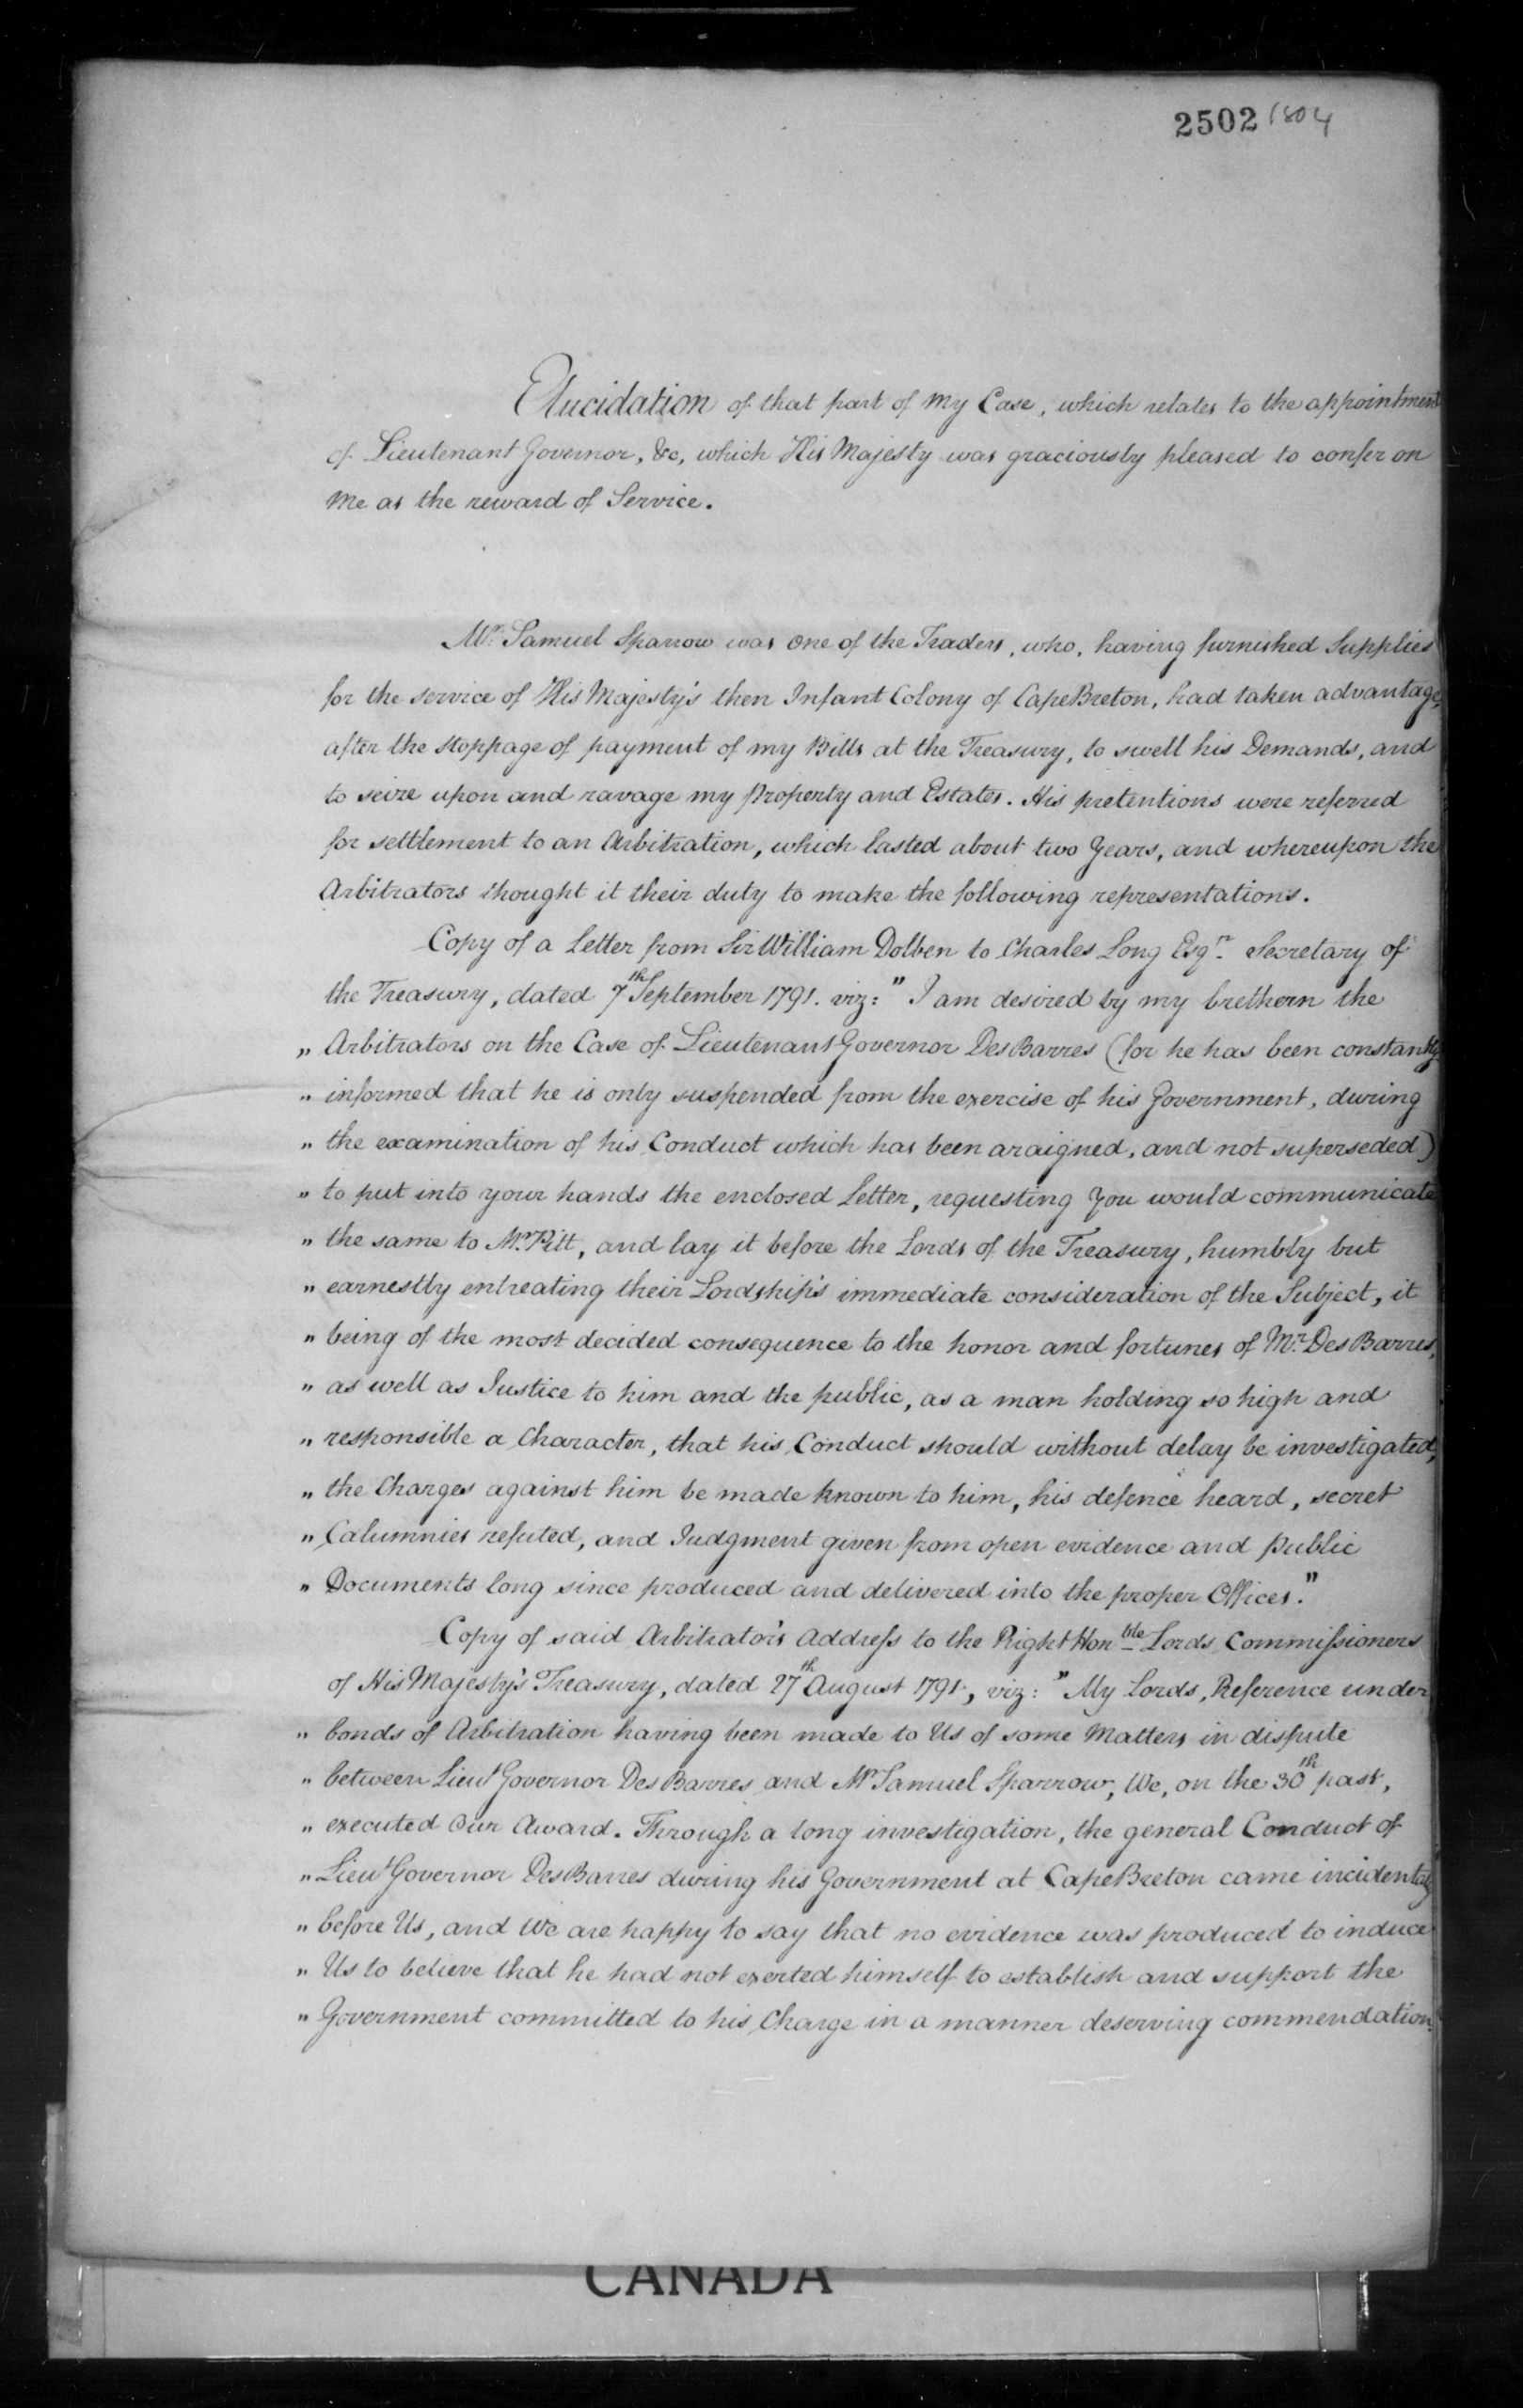 2502 1804
Elucidation of that part of my Case, which relates to the appointment
of Lieutenant Governor, &c, which His Majesty was graciously pleased to confer on
me as the reward of Service.
Mr. Samuel Sparrow was one of the Traders, who, having furnished Supplies
for the service of His Majesty's then Infant Colony of Cape Breton, had taken advantage,
after the stoppage of payment of my Bills at the Treasury, to swell his Demands, and
to seize upon and ravage my Property and Estates. His pretentions were referred
for settlement to an Arbitration, which lasted about two Years, and whereupon the
Arbitrators thought it their duty to make the following representations.
Copy of a Letter from Sir William Dolben to Charles Long Esqr. Secretary of
the Treasury, dated 7th September 1791. viz: "I am desired by my brethern the
" Arbitrators on the Case of Lieutenant Governor DesBarres (for he has been constantly
" informed that he is only suspended from the exercise of his Government, during
" the examination of his Conduct which has been araigned, and not superseded)
" to put into your hands the enclosed Letter, requesting You would communicate
" the same to Mr. Pitt, and lay it before the Lords of the Treasury, humbly but
" earnestly entreating their Lordship's immediate consideration of the Subject, it
" being of the most decided consequence to the honor and fortunes of Mr. DesBarres,
" as well as Justice to him and the public, as a man holding so high and
" responsible a Character, that his Conduct should without delay be investigated,
" the Charges against him be made known to him, his defence heard, secret
" Calumnies refuted, and Judgment given from open evidence and public
" Documents long since produced and delivered into the proper Offices."
Copy of said Arbitrator's Address to the Right Honble Lords Commissioners
of His Majesty's Treasury, dated 27th August 1791, viz: "My Lords, Reference under
" bonds of Arbitration having been made to Us of some Matters in dispute
" between Lieut Governor DesBarres and Mr Samuel Sparrow, We, on the 30th past,
" executed Our Award. Through a long investigation, the general Conduct of
" Lieut Governor DesBarres during his Government at Cape Breton came incidentaly
" before Us, and We are happy to say that no evidence was produced to induce
" Us to believe that he had not exerted himself to establish and support the
" Government committed to his Charge in a manner deserving commendation.
CANADA